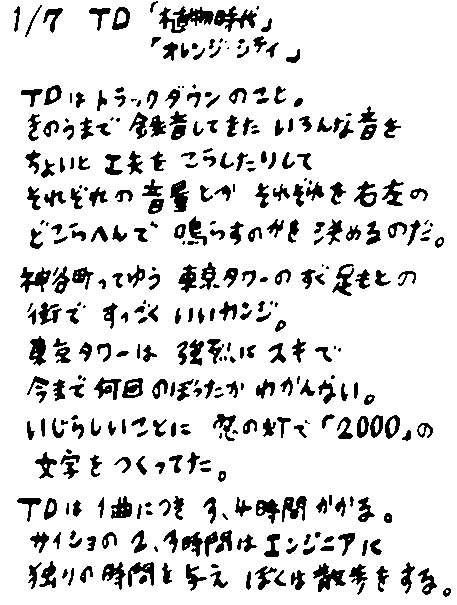 1/7 TD「植物時代」
「オレンジ・シティ」
TDはトラックダウンのこと。
きのうまで録音してきたいろんな音を
ちょいと工夫をこらしたりして
それぞれの音量とか それぞれを右左の
どこらへんで 鳴らすのかを決めるのだ。
神谷町ってゆう 東京タワーのすぐ足もとの
街で すっごく いいカンジ。
東京タワーは 強烈にスキで
今まで何回のぼったかわかんない。
いじらしいことに 窓の灯で「2000」の
文字をつくってた。
TDは1曲につき3、4時間かかる。
サイショの2、3時間はエンジニアに
独りの時間を与え ぼくは散歩をする。